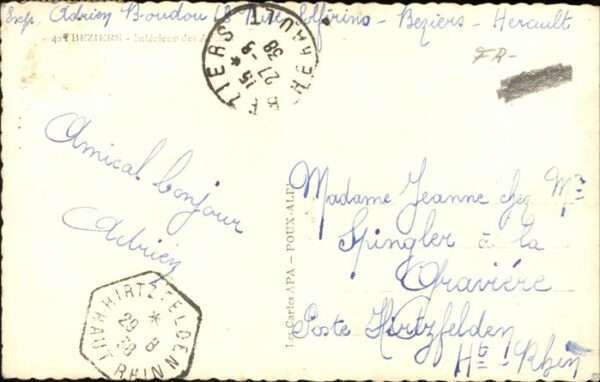 Exp. Adrien Boudou 18 Rue Solférino - Beziers - Herault
BEZIERS - Intérieur des
BEZIERS
15 *
27-8
38
HERAULT
FR-
Amical bonjour
Adrien
Les Cartes APA - POUX-ALBI
Madame Jeanne chez Mr
Spingler à la
Gravière
Poste Hirtzfelden
Ht-Rhin
HIRTZFELDEN
*
29 8
38
HAUT RHIN